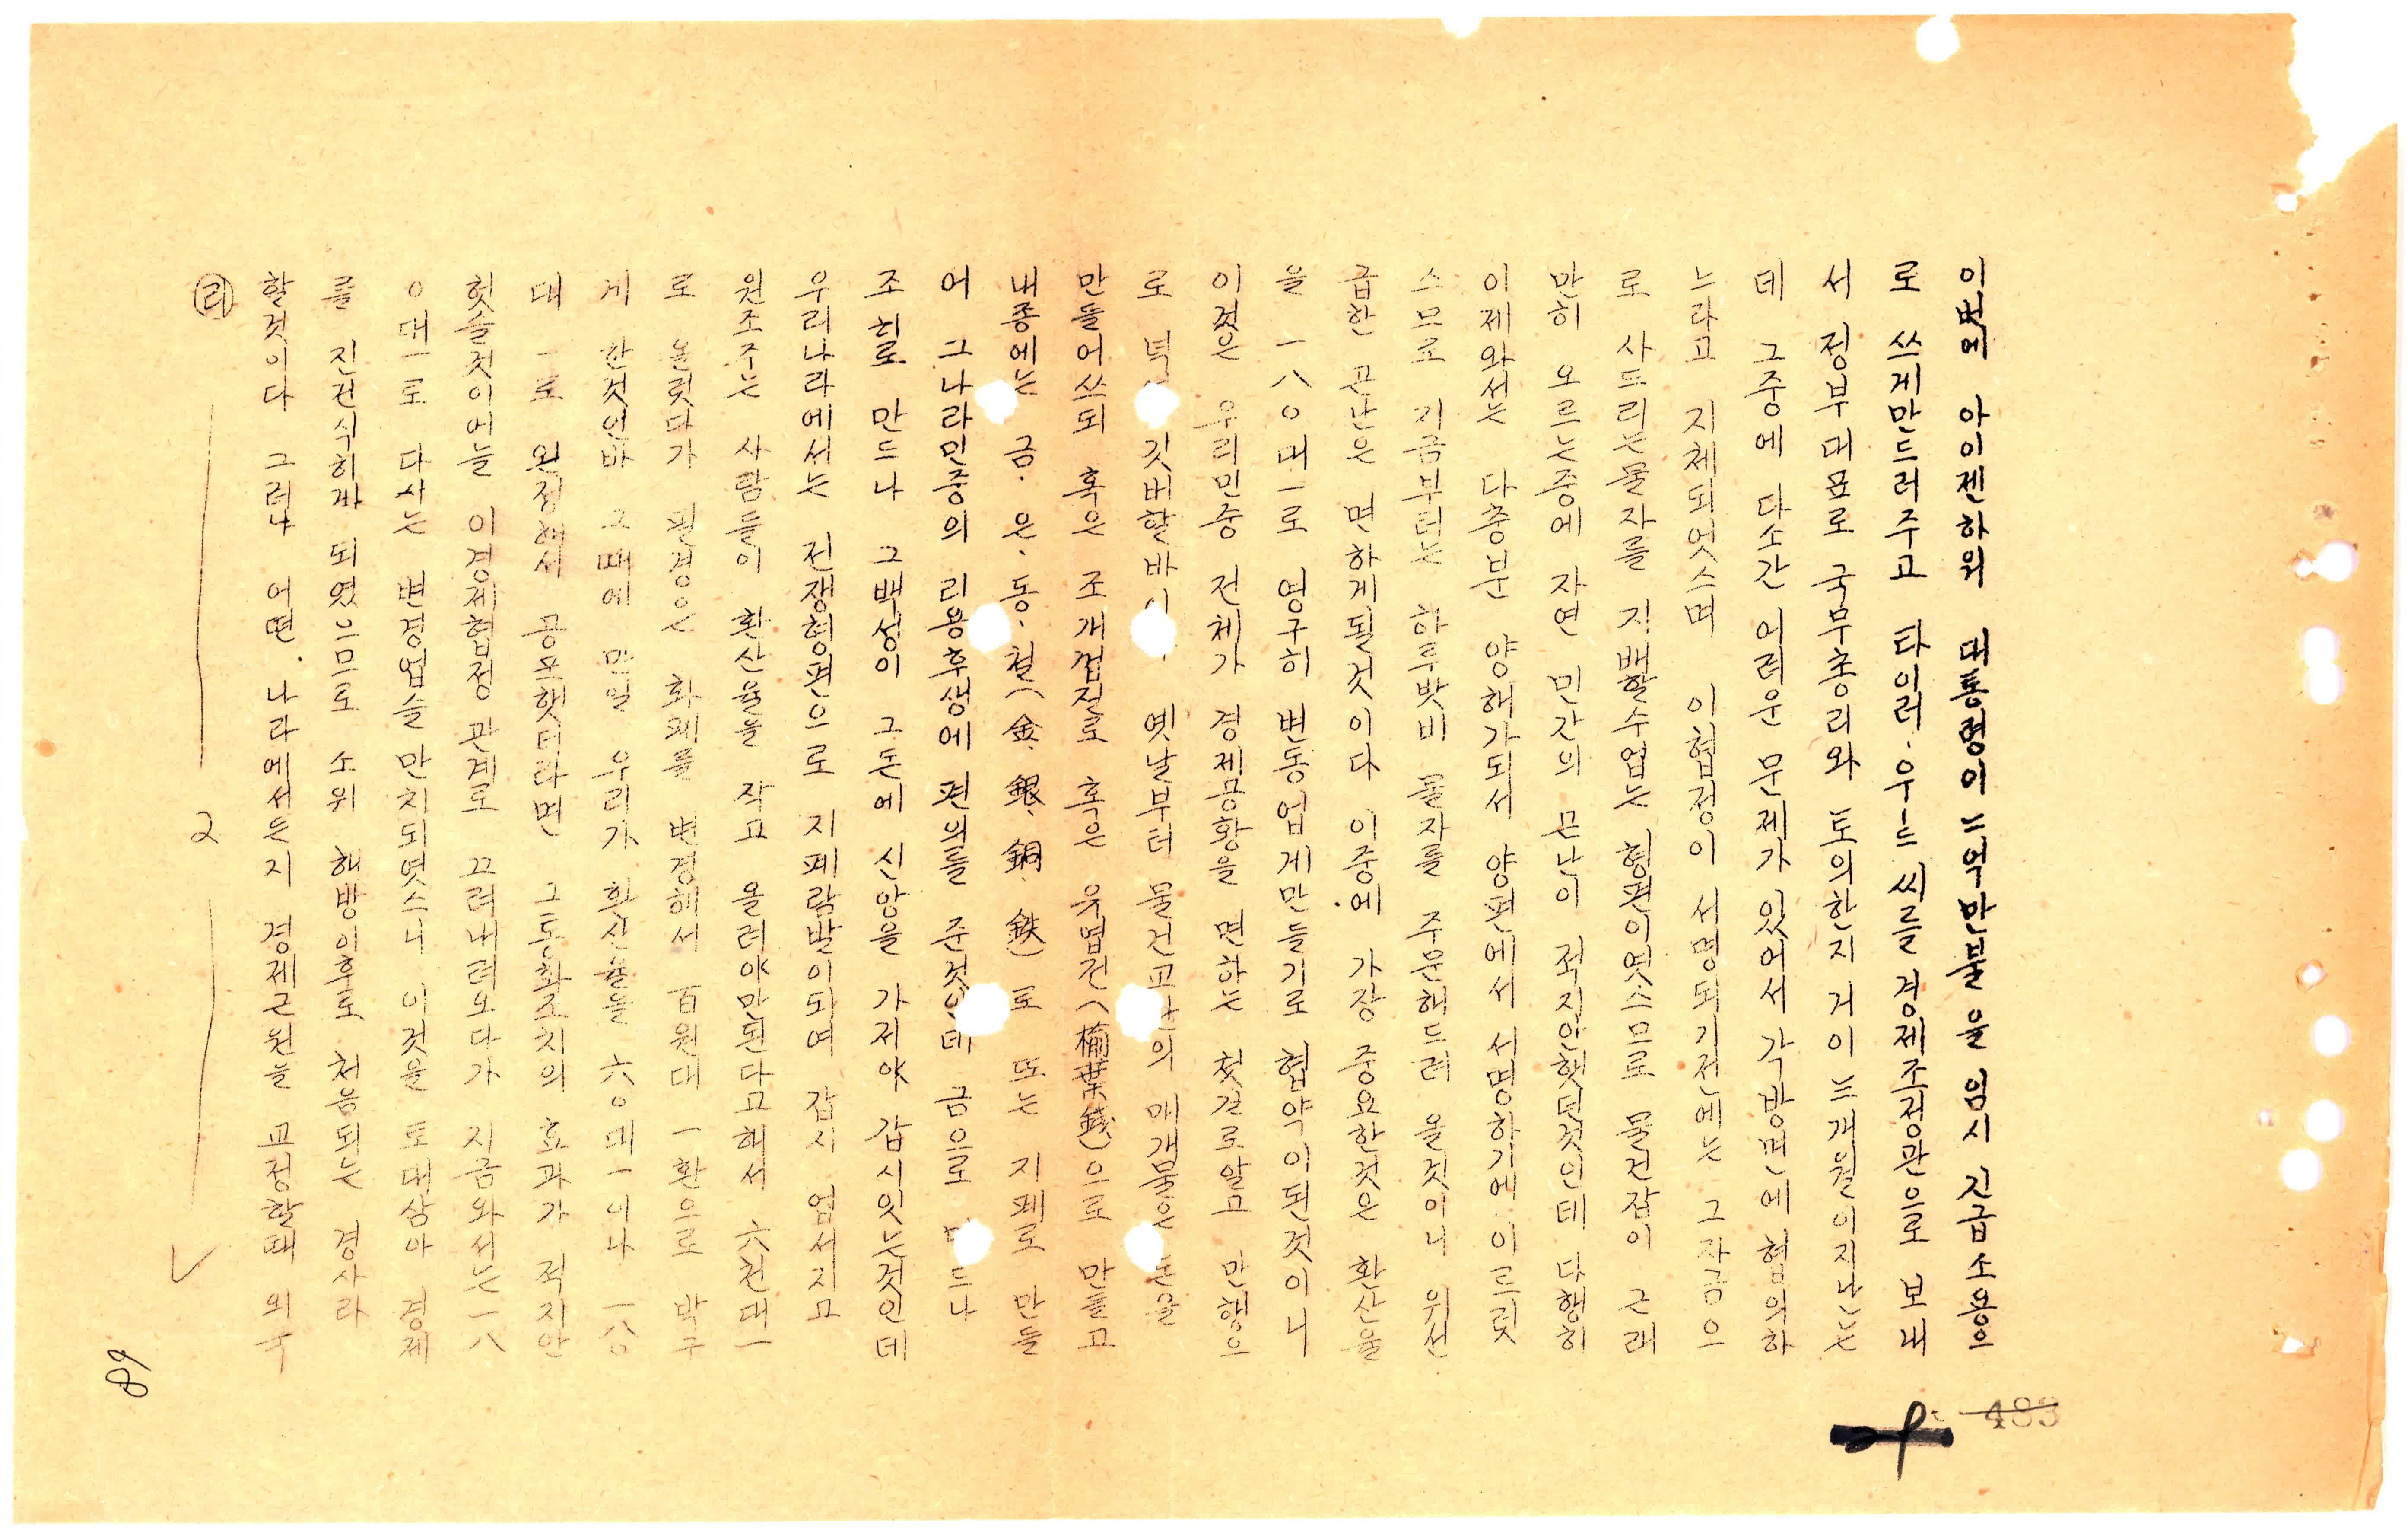 이번에 아이젠하워 대통령이 二억만불을 임시 긴급소용으
로 쓰게만드러주고 타이러·우ㅡ드씨를 경제조정관으로 보내
서 정부대표로 국무총리와 토의한지 거이 三개월이지난는
데 그중에 다소간 어려운 문제가 있어서 각방면에 협의하
느라고 지체되엿스며 이협정이 서명되기전에는 그자금으
로 사드리는물자를 지배할수업는 형편이엿스므로 물건갑이 근래
만히 오르는중에 자연 민간의 곤난이 적지안햇던것인데 다행히
이제와서는 다충분 양해가되서 양편에서 서명하기에 이르럿
스므로 지금부터는 하루밧비 물자를 주문해드려 올것이니 위선
급한 곤난은 면하게될것이다 이중에 가장 중요한것은 환산율
을 一八○대一로 영구히 변동업게만들기로 협약이된것이니
이것은 우리민중 전체가 경제공황을 면하는 첫길로알고 만행으
로 깃버할바 옛날부터 물건교 의 매개물은 돈을
만들어쓰되 혹은 조개껍질로 혹은 유엽전(楡葉錢)으로 만들고
내종에는 금·은·동·철(金、銀、銅、鉄)로 또는 지페로 만들
어 그나라민중의 리용후생에 편의를 준것인데 금으로 드나
조히로 만드나 그백성이 그돈에 신앙을 가저야 갑시잇는것인데
우리나라에서는 전쟁형편으로 지페람발이되여 갑시 업서지고
원조주는 사람들이 환산율을 작고 올려야만된다고해서 六천대一
로 올럿다가 필경은 화페를 변경해서 百원대 一환으로 박구
게 한것인바 그때에 만일 우리가 환산율을 六○대一이나 一八○
대 一로 완정해서 공포햇더라면 그통화조치의 효과가 적지안
헛슬것이어늘 이경제협정 관계로 끄러내려오다가 지금와서는 一八
○대一로 다시는 변경업슬만치되엿스니 이것을 토대삼아 경제
를 진전식히게 되였으므로 소위 해방이후로 처음되는 경사라
할것이다 그러나 어떤·나라에서든지 경제근원을 교정할때 외국
㉣ 2
89
483